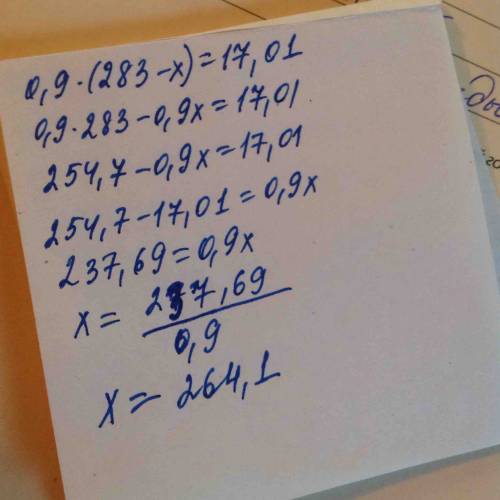 0,9·(283-x)=17,01
0,9·283-0,9x=17,01
254,7-0,9x=17,01
254,7-17,01=0,9x
237,69=0,9x
x= 237,69
0,9
x=264,1